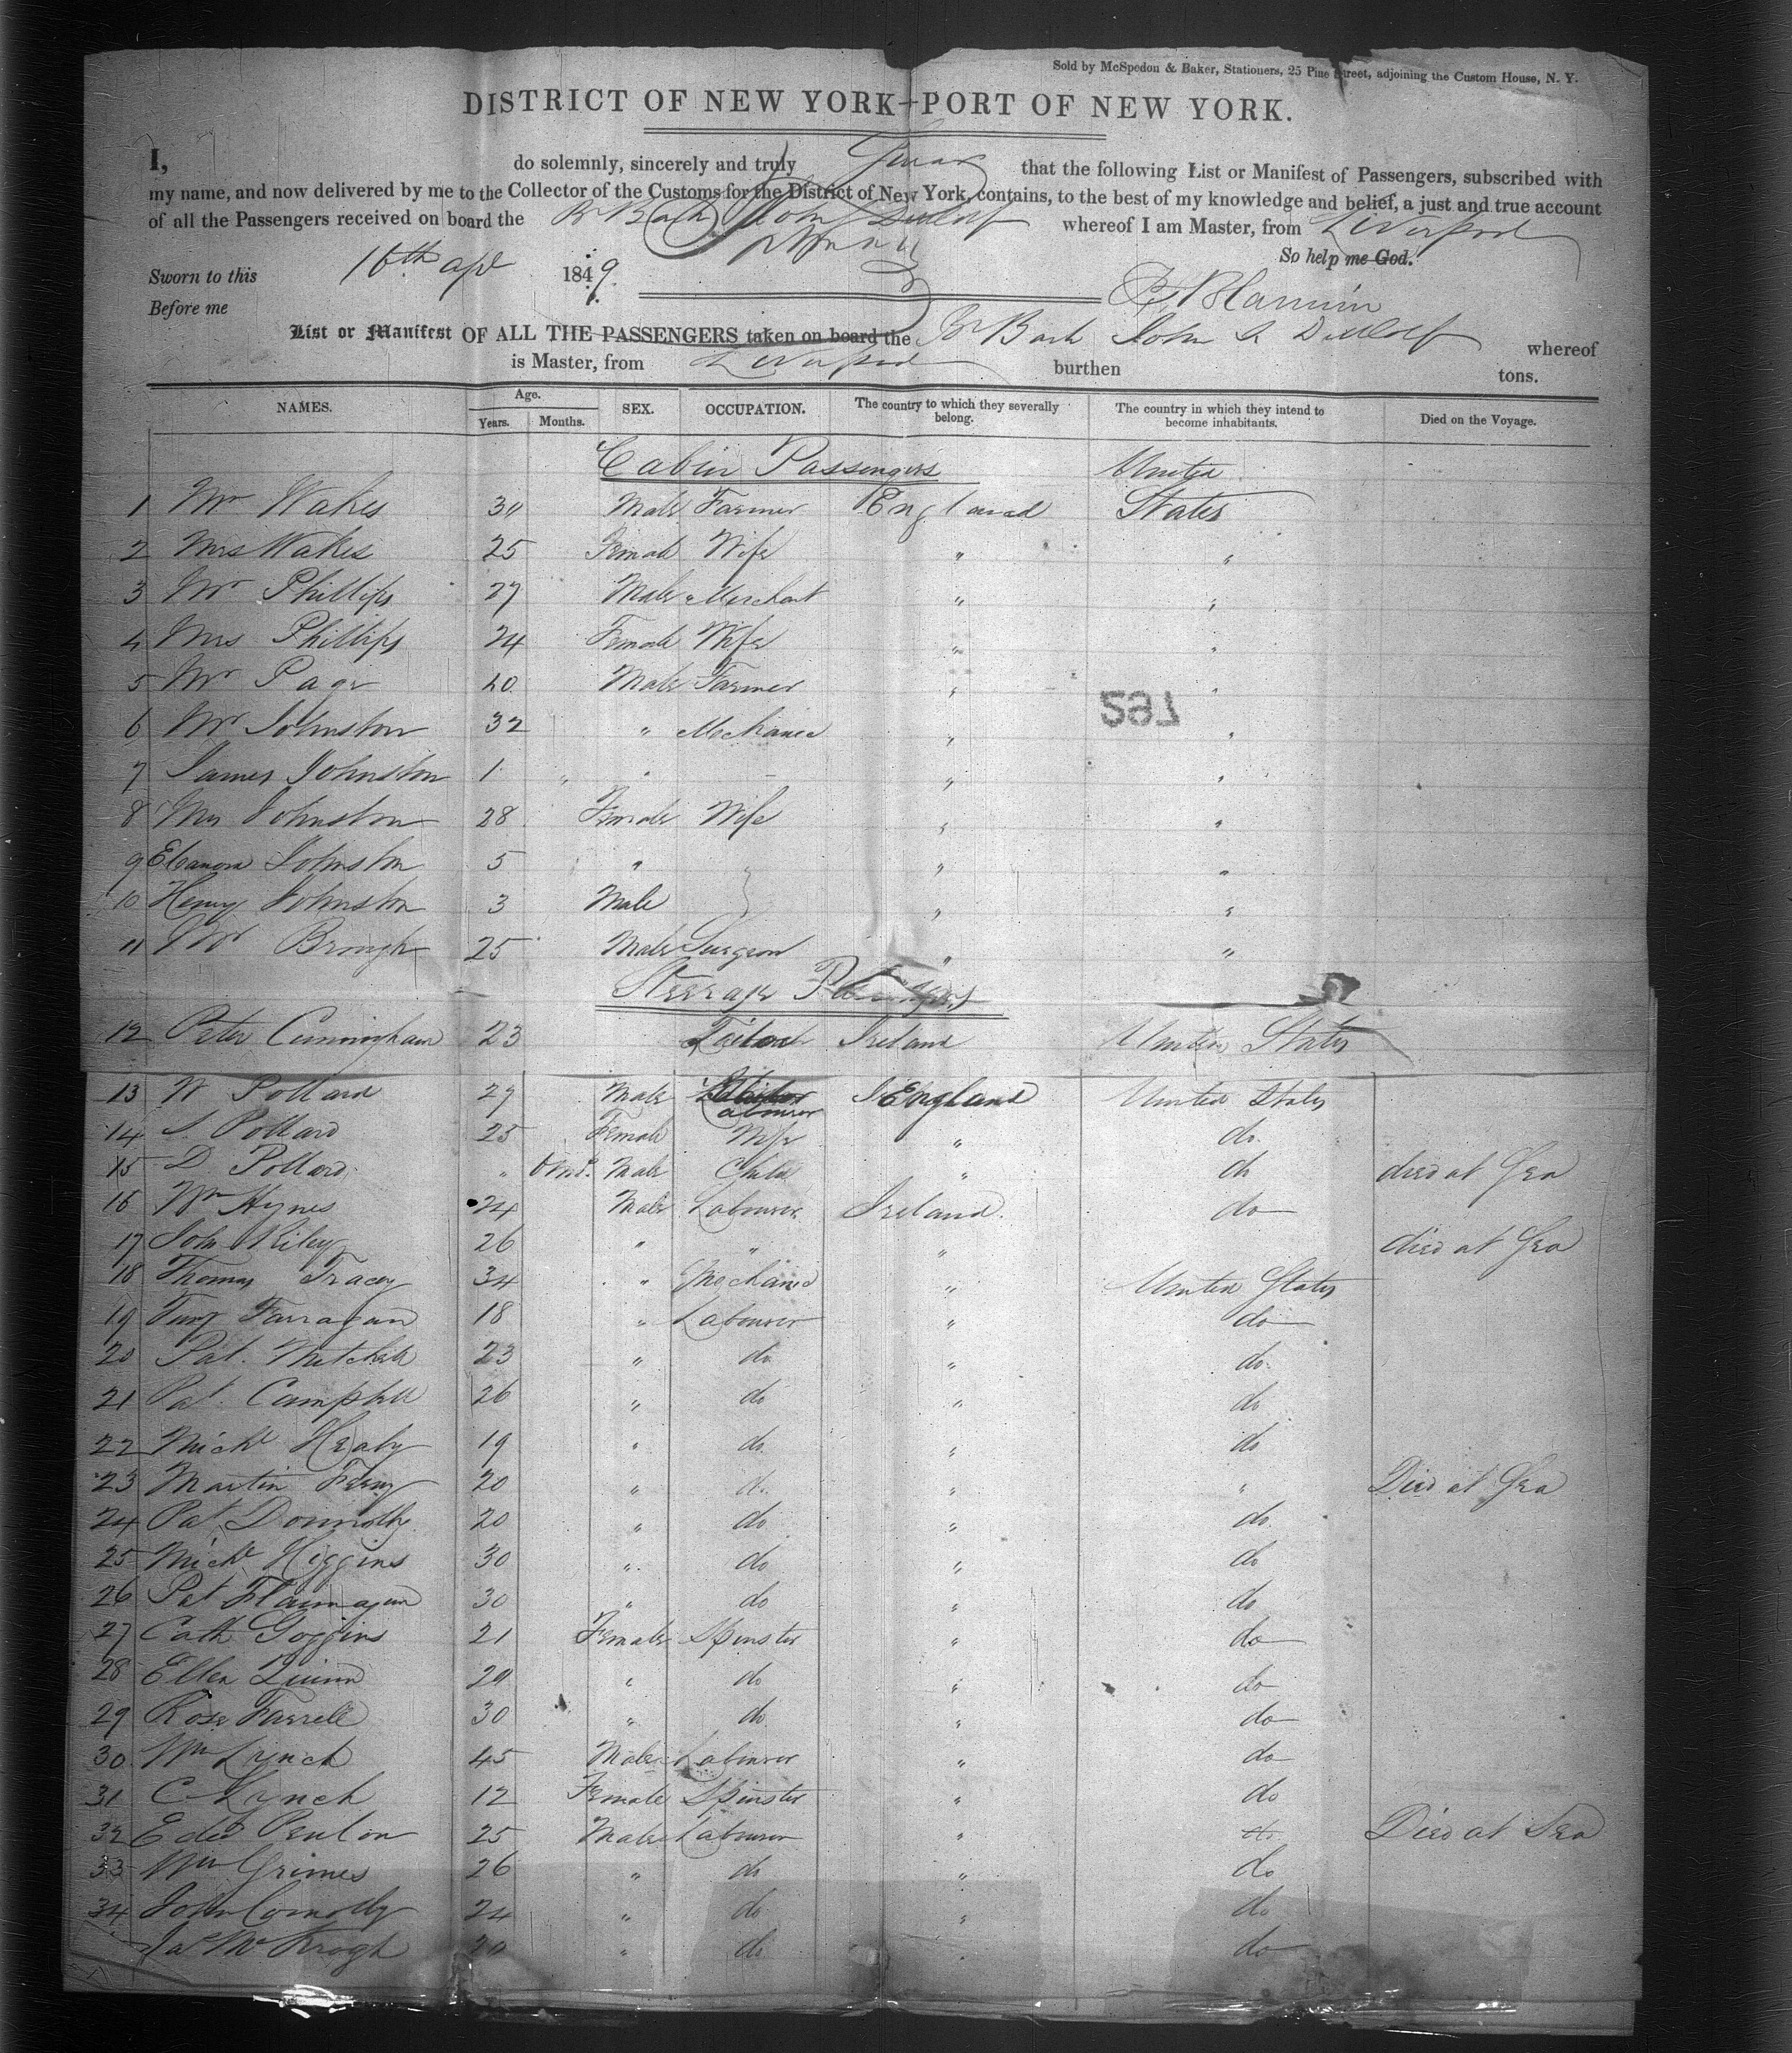 Sold by McSpedon & Baker, Stationers, 25 Pine Street, adjoining the Custom House, N. Y.
DISTRICT OF NEW YORK—PORT OF NEW YORK.
I, do solemnly, sincerely and truly Swear that the following List or Manifest of Passengers, subscribed with
my name, and now delivered by me to the Collector of the Customs for the District of New York, contains, to the best of my knowledge and belief, a just and true account
of all the Passengers received on board the Br Bark John whereof I am Master, from Liverpool
So help me God.
Sworn to this 16th apl 1849.
Before me
List or Manifest OF ALL THE PASSENGERS taken on board the Br Bark John whereof
is Master, from Liverpool burthen tons.
NAMES. Age. Years. Months. SEX. OCCUPATION. The country to which they severally belong. The country in which they intend to become inhabitants. Died on the Voyage.
Cabin Passengers United
1 Mr Wakes 30 Male Farmer England States
2 Mrs Wakes 25 Female Wife " "
3 Mr Phillips 27 Male Merchant " "
4 Mrs Phillips 24 Female Wife " "
5 Mr Page 40 Male Farmer " "
297
6 Mr Johnston 32 " Mechanic " "
7 James Johnston 1 " " - " "
8 Mrs Johnston 28 Female Wife " "
9 Eleanora Johnston 5 " " "
10 Henry Johnston 3 Male " "
11 Mr Brough 25 Male Surgeon " "
Steerage Passengers
12 Peter Cunningham 23 Ireland United States
13 W Pollard 29 Male Labourer England United States
14 S Pollard 25 Female Wife " do
15 D Pollard " Male Child " do died at Sea
16 Wm Hynes 24 Male Labourer Ireland do
17 John Riley 26 " " " died at Sea
18 Thomas Tracey 34 " Mechanic " United States
19 Farragan 18 " Labourer " do
20 Pat. Mitchell 23 " do " do
21 Pat. Campbell 26 " do " do
22 Michl Healy 19 " do " do
23 Martin 20 " do " " Died at Sea
24 Pat 20 " do " do
25 Michl Higgins 30 " do " do
26 Pat Flannagan 30 " do " do
27 Cath Goggins 21 Female Spinster " do
28 Ellen Quinn 20 " do " do
29 Rose Farrell 30 " do " do
30 Wm Lynch 45 Male Labourer " do
31 C Lynch 12 Female Spinster " do
32 Edwd 25 Male Labourer " do Died at Sea
33 Wm Grimes 26 " do " do
34 John Connolly 24 " do " do
Jas 20 " do " do